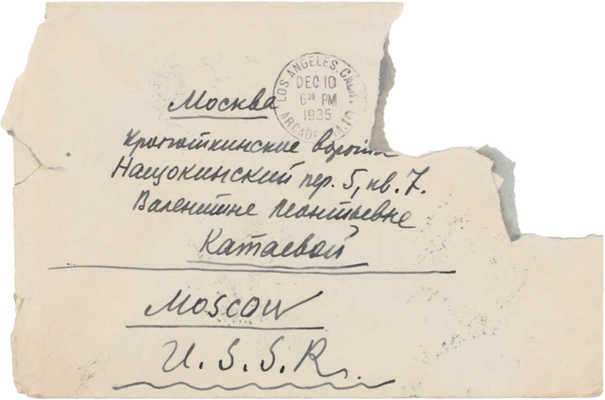 LOS ANGELES, CALIF.
DEC 10
6 PM
1935
ARCADE
Москва
Кропоткинские ворота
Нащокинский пер. 5, кв. 7.
Валентине Леонтьевне
Катаевой
MOSCOW
U.S.S.R.